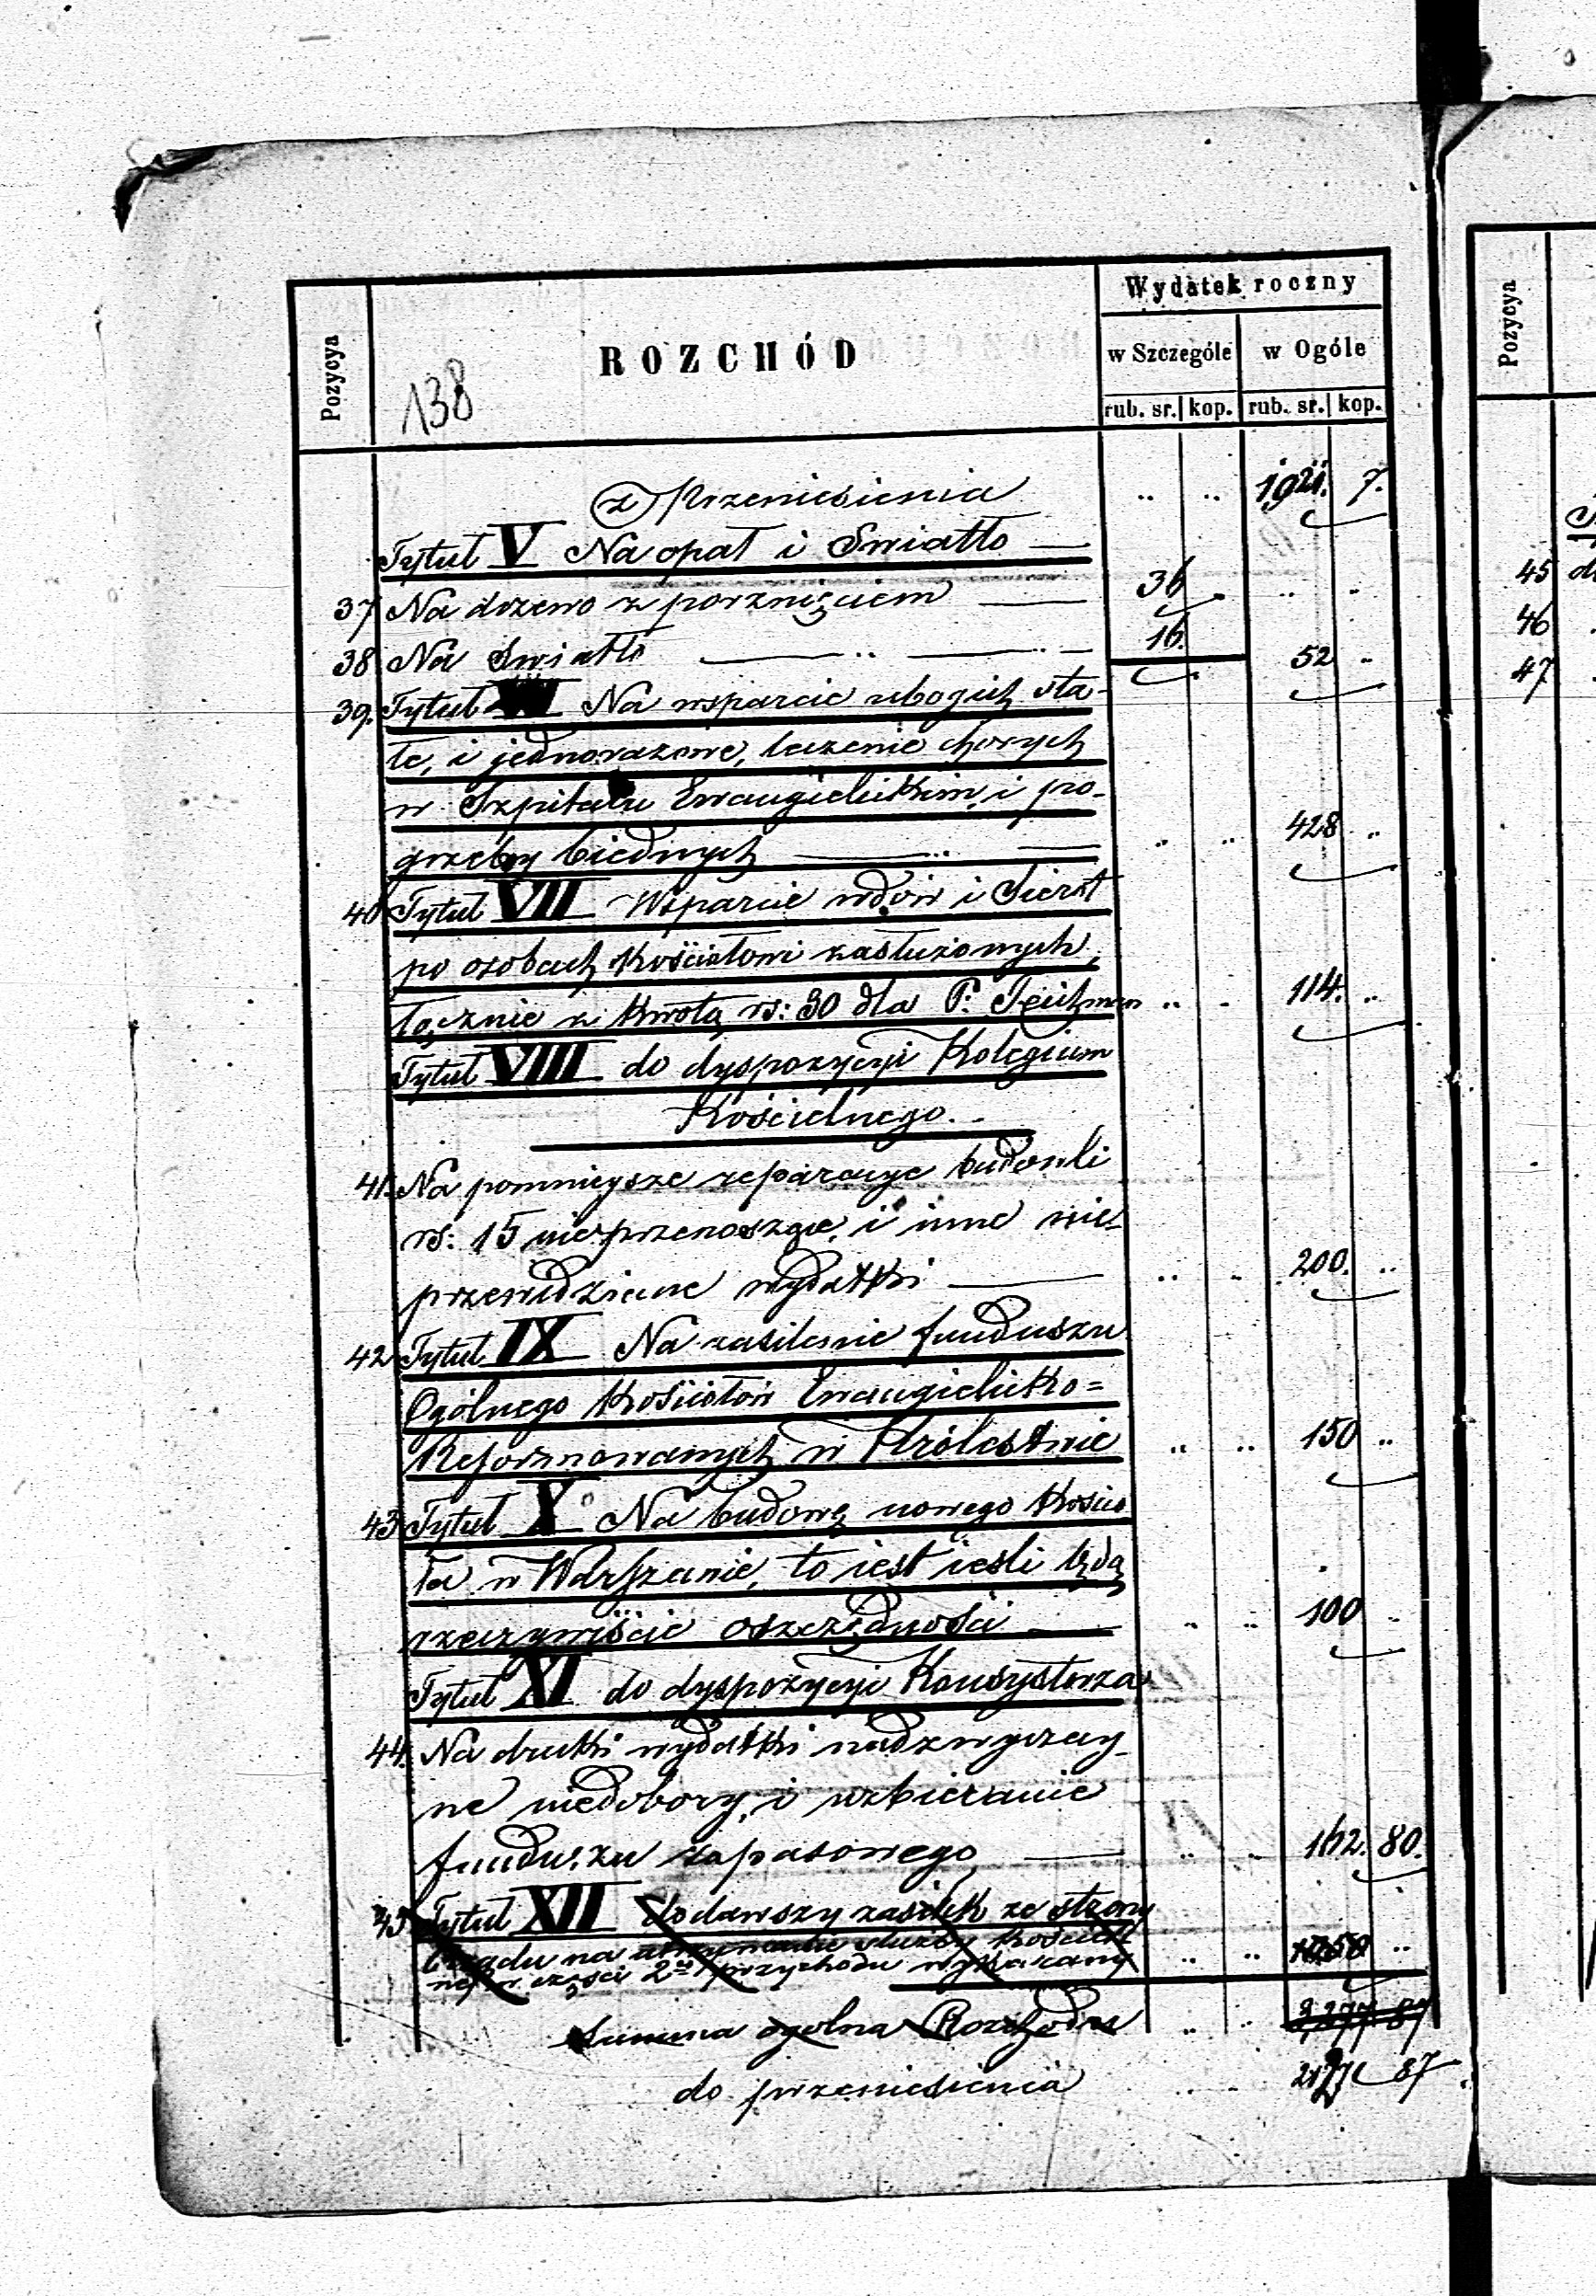 Wydatek roczny
Pozycya
ROZCHÓD
w Szczególe w Ogóle
138
rub. sr. kop. rub. sr. kop.
z Przeniesienia .. .. 1921. 7.
Tytuł V Na opał i Swiatło
37 Na drzewo z porznięciem 36 .. .
38 Na Swiatło 16. 52 ..
39. Tytuł Na wsparcie ubogich sta-
łe, i jednorazowe, leczenie chorych
w Szpitalu Ewangielickim, i po-
grzeby biednych .. .. 428 ..
40 Tytuł VII Wsparcie wdów i Sierot
po osobach Kościołowi zasłużonych,
łącznie z kwotą rs: 30 dla P. .. . 114. ..
Tytuł VIII do dyspozycyi Kolegium
Kościelnego.
41. Na pomniejsze reparacye budowli
rs: 15 nieprzenosząc, i inne nie-
przewidziane wydatki .. .. 200. ..
42 Tytuł IX Na zasilenie funduszu
Ogólnego Kościołów Ewangielicko=
Reformowanych w Królestwie .. .. 150 ..
43 Tytuł X Na budowę nowego Kościo
ła w Warszawie, to iest ieśli będą
rzeczywiście oszczędności .. .. 100 ..
Tytuł XI do dyspozycyi Konsystorza
44. Na druki wydatki nadzwyczay-
ne niedobory, i uzbieranie
funduszu zapasowego .. .. 162. 80.
45 Tytuł XII dodawszy zasiłek ze strony
Rządu na utrzymanie służby Kościel
nej w części 2ej przychodu wykazany .. .. ..
Summa ogolna Rozchodu .. .. 3,277 87
do przeniesienia .. .. 87
Pozycya
45
46
47